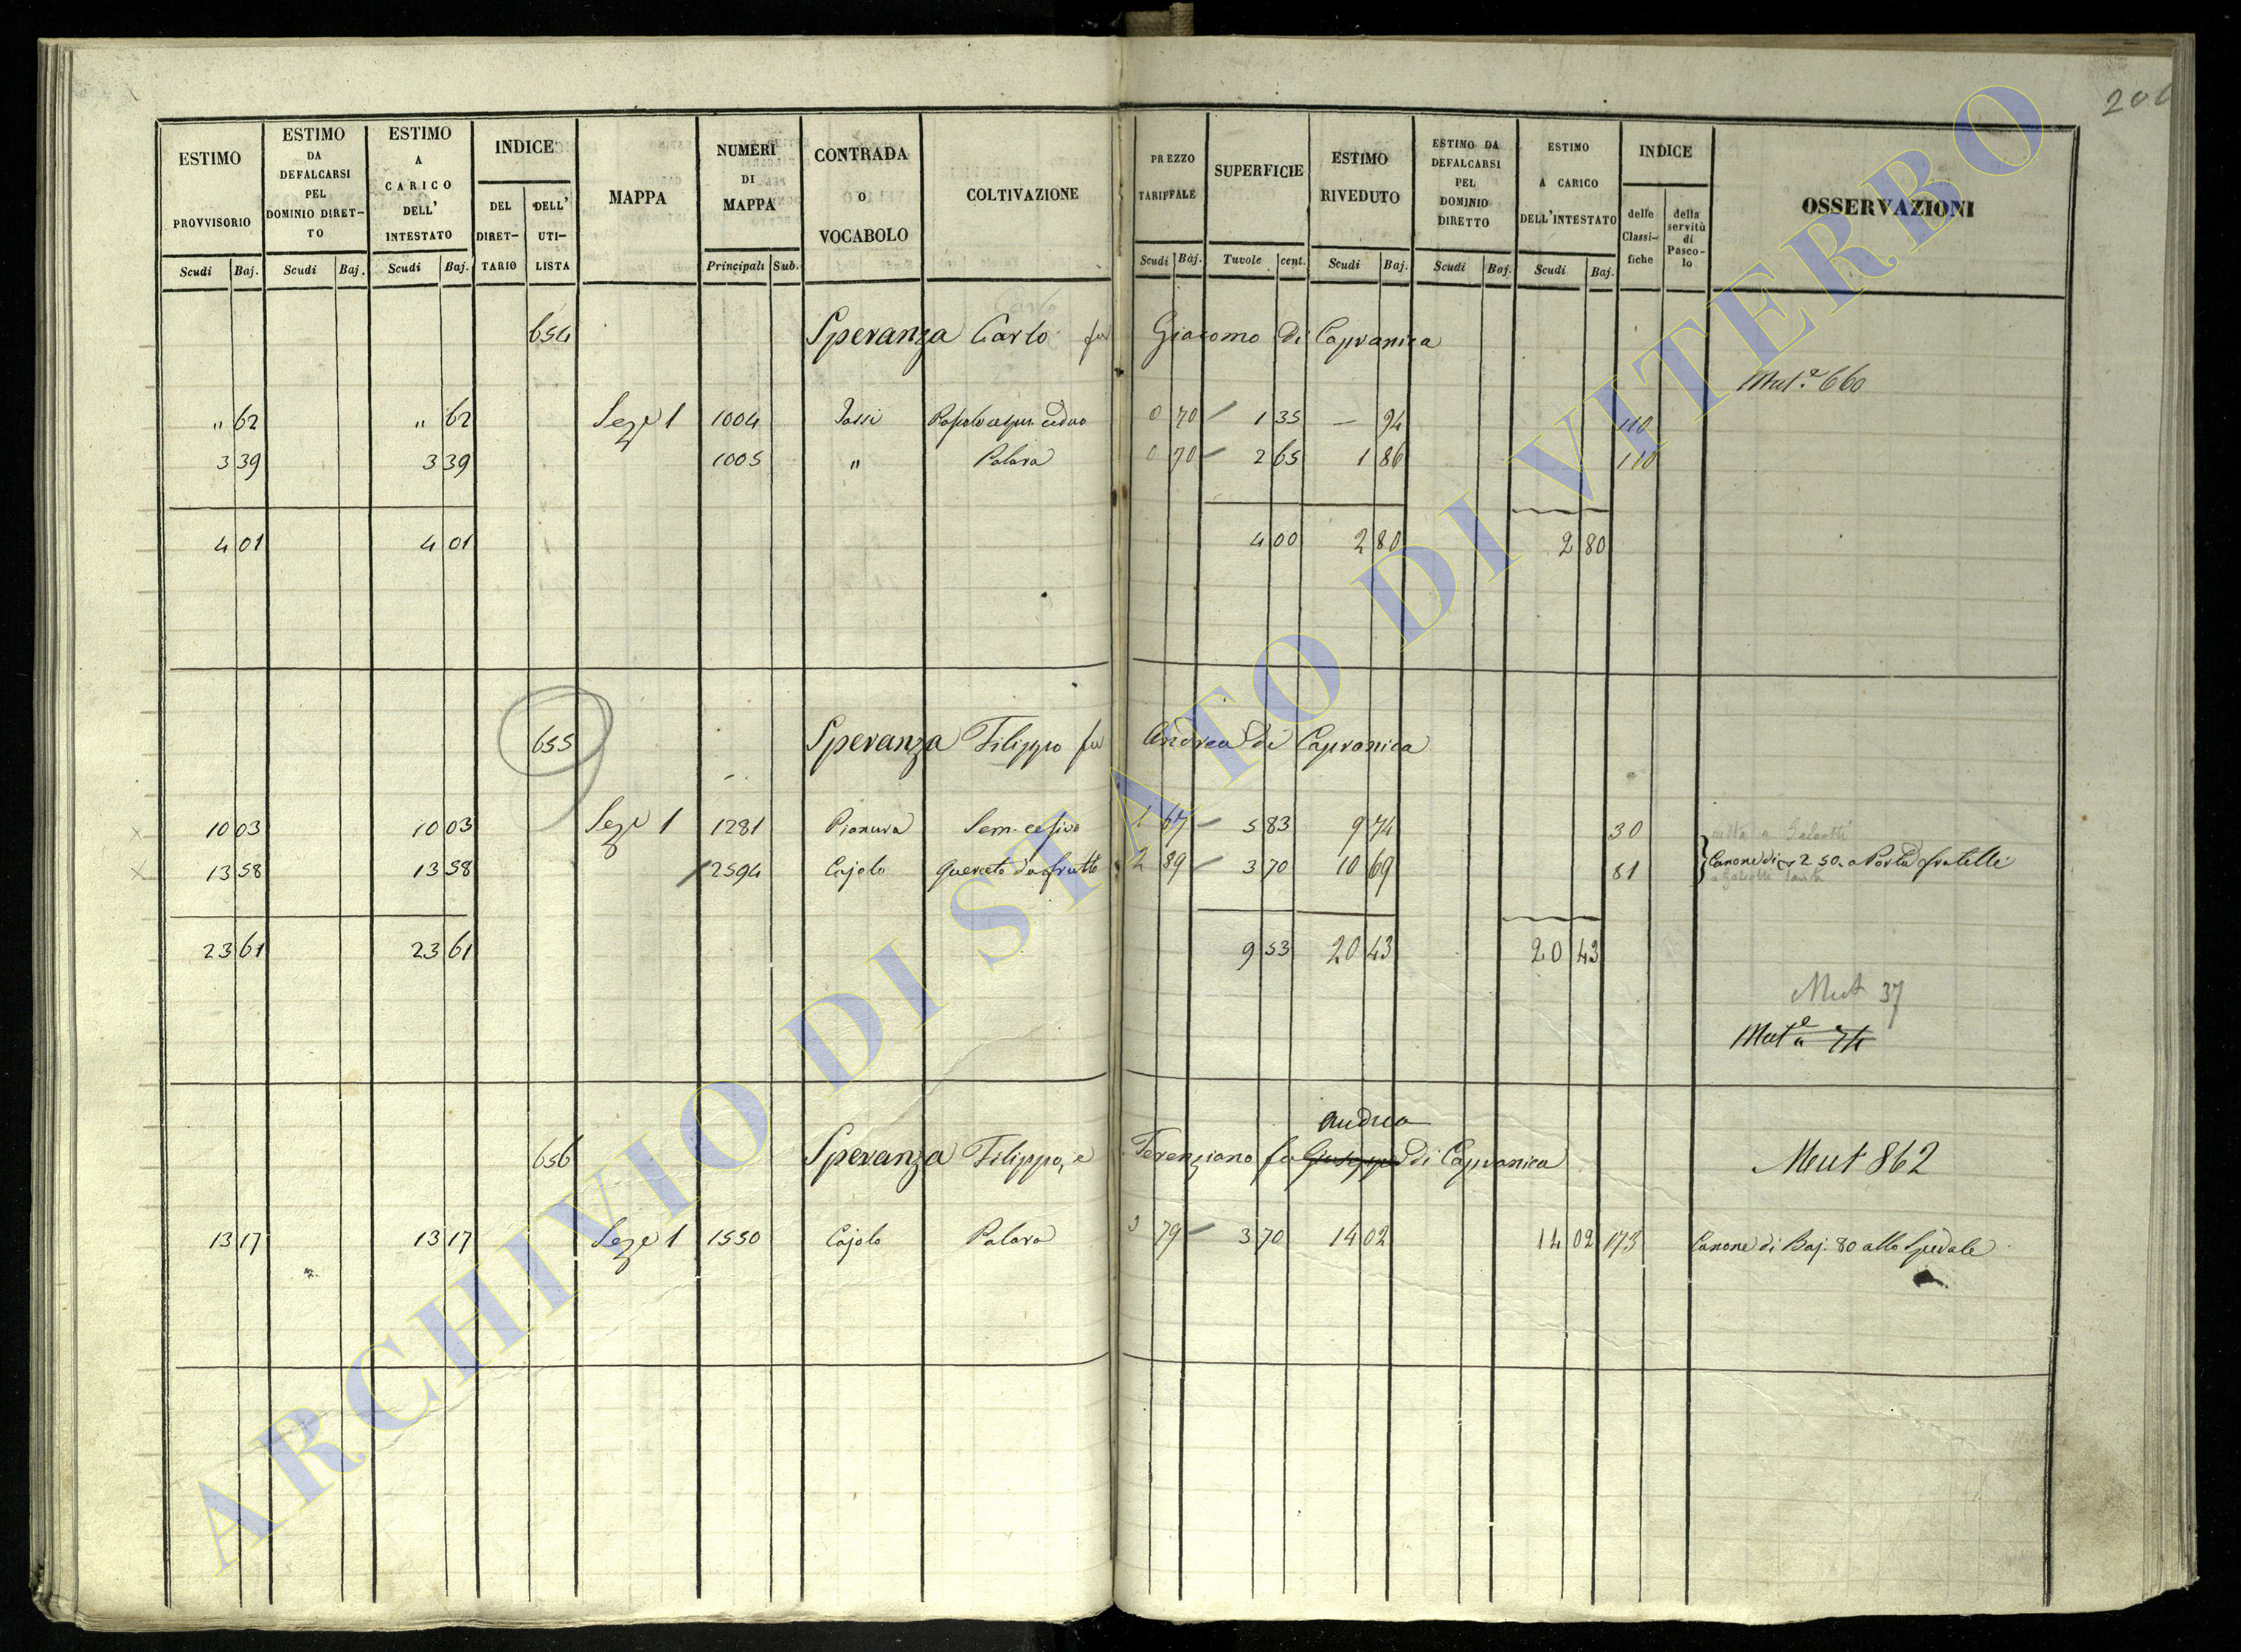 206
ESTIMO PROVVISORIO
ESTIMO DA DEFALCARSI PEL DOMINIO DIRET-TO
ESTIMO A CARICO DELL' INTESTATO
INDICE
DEL DIRET-TARIO
DELL' UTI-LISTA
MAPPA
NUMERI DI MAPPA
CONTRADA o VOCABOLO
COLTIVAZIONE
PREZZO TARIFFALE
SUPERFICIE
ESTIMO RIVEDUTO
ESTIMO DA DEFALCARSI PEL DOMINIO DIRETTO
ESTIMO A CARICO DELL'INTESTATO
INDICE
delle Classi-fiche
della servitù di Pasco-lo
OSSERVAZIONI
Scudi Baj. Scudi Baj. Scudi Baj. Principali Sub. Scudi Baj. Tavole cent. Scudi Baj. Scudi Baj. Scudi Baj.
654 Speranza Carlo fu Giacomo di Capranica
Mut.e 660
" 62 " 62 Sez.e 1 1004 Pascolo cespu. ceduo 0 70 1 35 — 94 110
3 39 3 39 1005 " Palara 0 70 2 65 1 86 110
4 01 4 01 4 00 2 80 2 80
655 Speranza Filippo fu Andrea di Capranica
10 03 10 03 Sez.e 1 1281 Pianura Sem. 1 67 5 83 9 74 30 a Galeotti
13 58 13 58 2594 Cajolo Querceto da frutto 2 89 3 70 10 69 81 Canone di 2 50 a Porta fratelli
a Galeotti
23 61 23 61 9 53 20 43 20 43
Mut 37
Mut.e 74
Andrea
656 Speranza Filippo, e Terenziano fu Giuseppe di Capranica Mut 862
13 17 13 17 Sez.e 1 1550 Cajolo Palara 3 79 3 70 14 02 14 02 173 Canone di Baj. 80 allo Spedale
ARCHIVIO DI STATO DI VITERBO